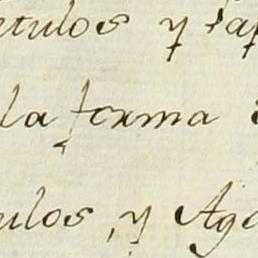 etulos y
la forma
ulos, y Ag